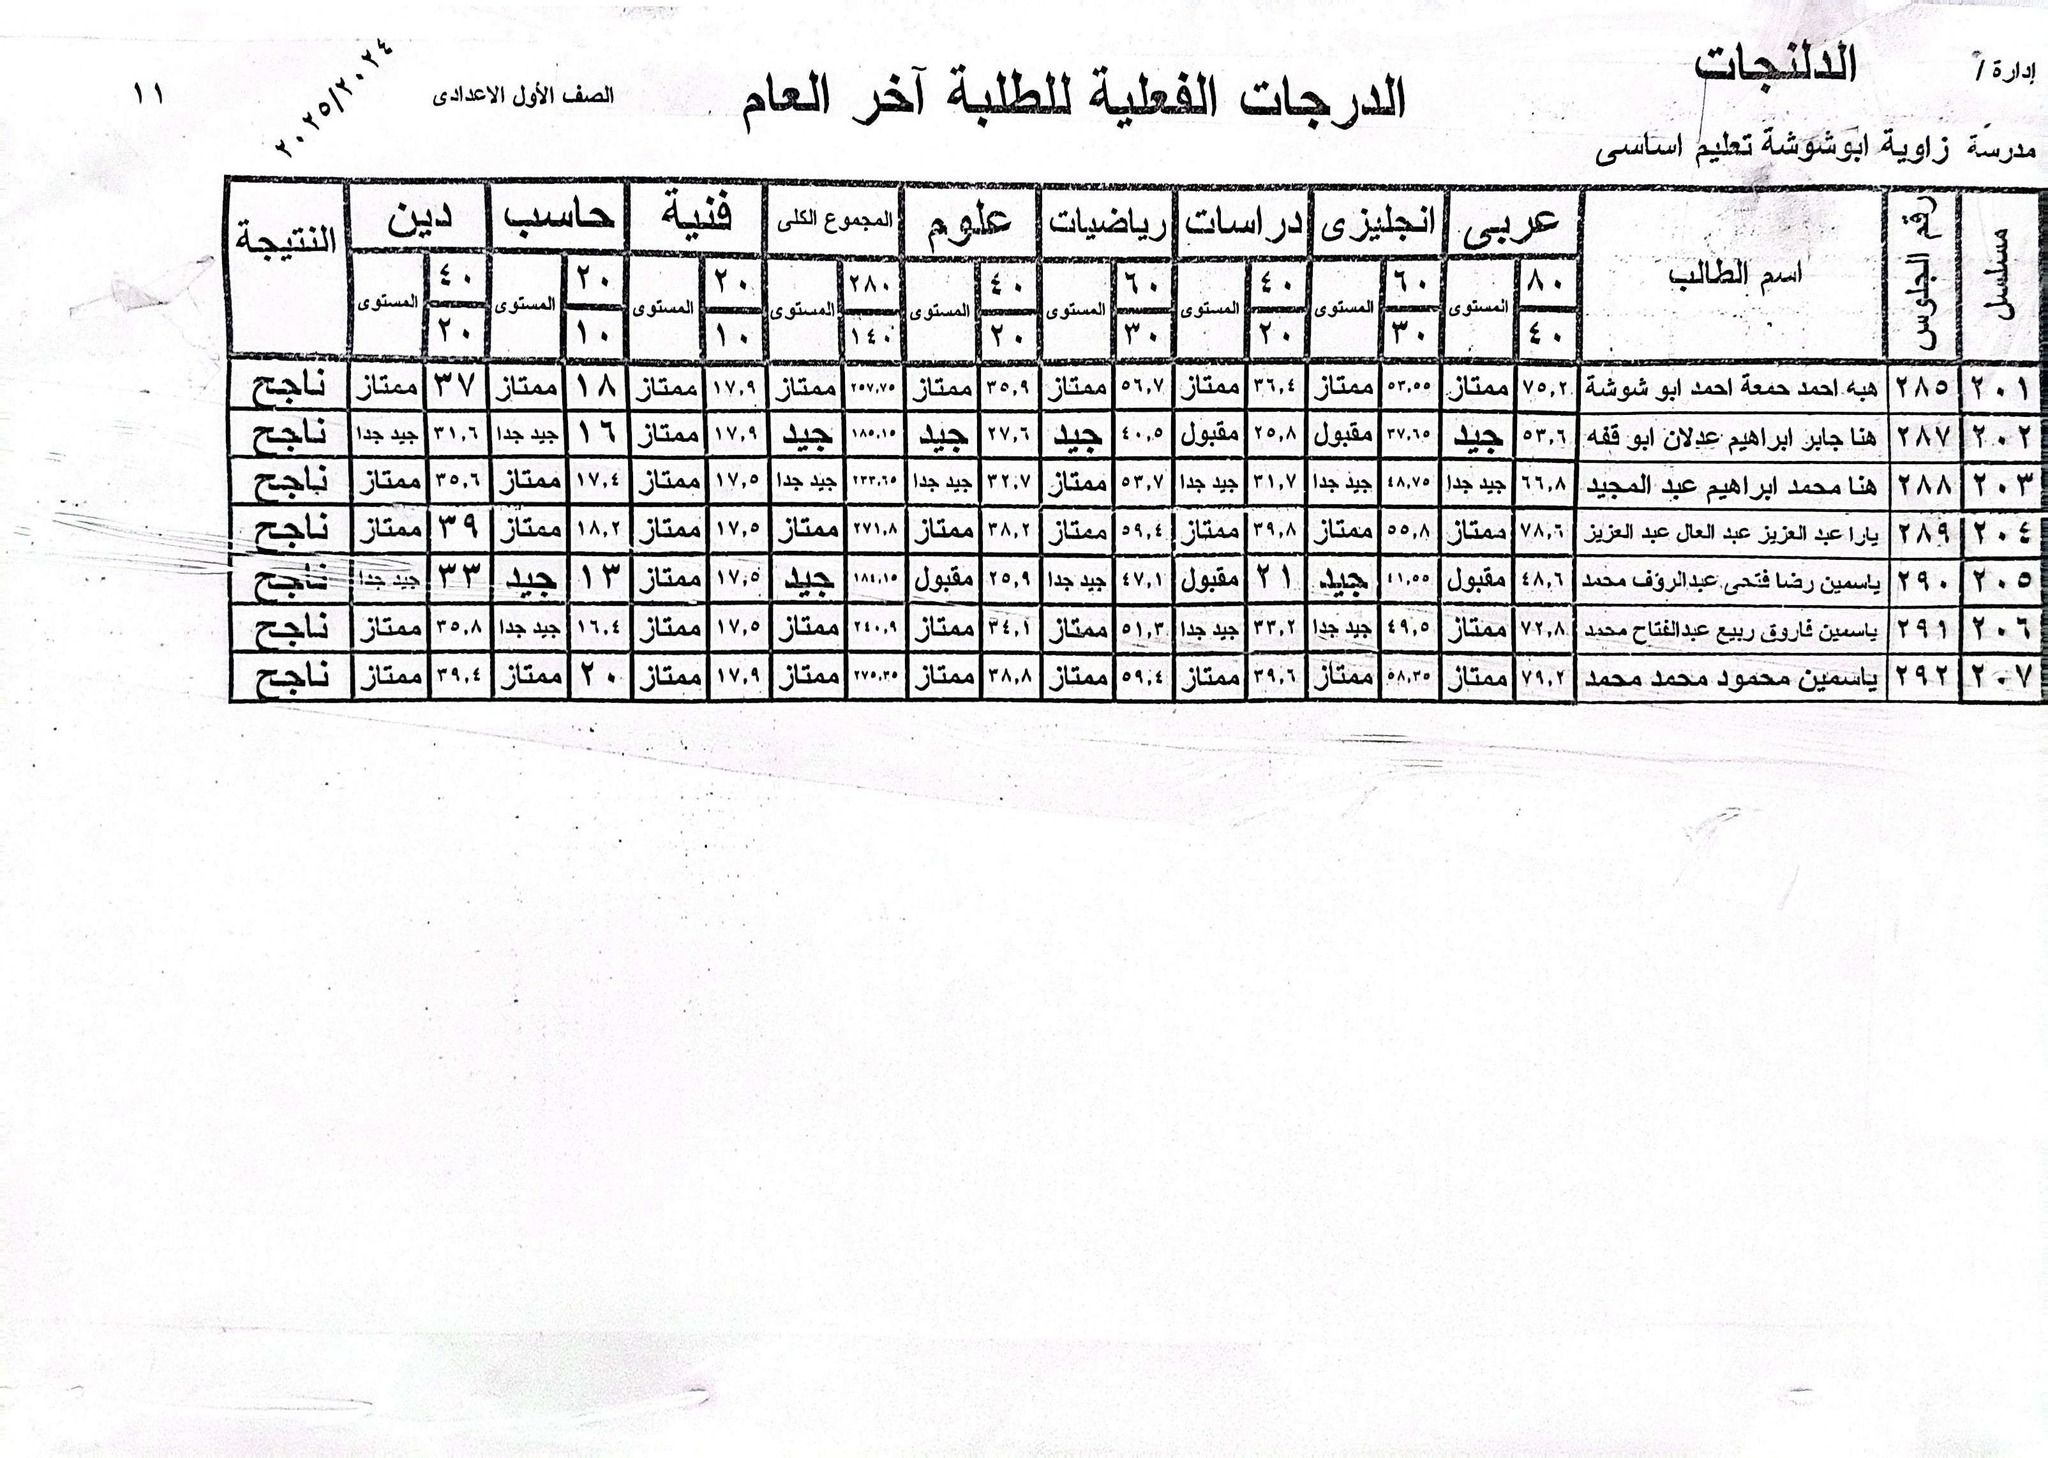 إدارة / الدلنجات
مدرسة زاوية ابوشوشة تعليم اساسى
الدرجات الفعلية للطلبة آخر العام
الصف الأول الاعدادى
٢٠٢٥/٢٠٢٤
١١
مسلسل رقم الجلوس اسم الطالب عربى انجليزى دراسات رياضيات علوم المجموع الكلى فنية حاسب دين النتيجة
٨٠ المستوى ٦٠ المستوى ٤٠ المستوى ٦٠ المستوى ٤٠ المستوى ٢٨٠ المستوى ٢٠ المستوى ٢٠ المستوى ٤٠ المستوى
٤٠ ٣٠ ٢٠ ٣٠ ٢٠ ١٤٠ ١٠ ١٠ ٢٠
٢٠١ ٢٨٥ هبه احمد حمعة احمد ابو شوشة ٧٥,٢ ممتاز ٥٣,٥٥ ممتاز ٣٦,٤ ممتاز ٥٦,٧ ممتاز ٣٥,٩ ممتاز ٢٥٧,٧٥ ممتاز ١٧,٩ ممتاز ١٨ ممتاز ٣٧ ممتاز ناجح
٢٠٢ ٢٨٧ هنا جابر ابراهيم عدلان ابو قفه ٥٣,٦ جيد ٣٧,٦٥ مقبول ٢٥,٨ مقبول ٤٠,٥ جيد ٢٧,٦ جيد ١٨٥,١٥ جيد ١٧,٩ ممتاز ١٦ جيد جدا ٣١,٦ جيد جدا ناجح
٢٠٣ ٢٨٨ هنا محمد ابراهيم عبد المجيد ٦٦,٨ جيد جدا ٤٨,٧٥ جيد جدا ٣١,٧ جيد جدا ٥٣,٧ ممتاز ٣٢,٧ جيد جدا ٢٣٣,٦٥ جيد جدا ١٧,٥ ممتاز ١٧,٤ ممتاز ٣٥,٦ ممتاز ناجح
٢٠٤ ٢٨٩ يارا عبد العزيز عبد العال عبد العزيز ٧٨,٦ ممتاز ٥٥,٨ ممتاز ٣٩,٨ ممتاز ٥٩,٤ ممتاز ٣٨,٢ ممتاز ٢٧١,٨ ممتاز ١٧,٥ ممتاز ١٨,٢ ممتاز ٣٩ ممتاز ناجح
٢٠٥ ٢٩٠ ياسمين رضا فتحى عبدالروٓف محمد ٤٨,٦ مقبول ٤١,٥٥ جيد ٢١ مقبول ٤٧,١ جيد جدا ٢٥,٩ مقبول ١٨٤,١٥ جيد ١٧,٥ ممتاز ١٣ جيد ٣٣ جيد جدا ناجح
٢٠٦ ٢٩١ ياسمين فاروق ربيع عبدالفتاح محمد ٧٢,٨ ممتاز ٤٩,٥ جيد جدا ٣٣,٢ جيد جدا ٥١,٣ ممتاز ٣٤,١ ممتاز ٢٤٠,٩ ممتاز ١٧,٥ ممتاز ١٦,٤ جيد جدا ٣٥,٨ ممتاز ناجح
٢٠٧ ٢٩٢ ياسمين محمود محمد محمد ٧٩,٢ ممتاز ٥٨,٣٥ ممتاز ٣٩,٦ ممتاز ٥٩,٤ ممتاز ٣٨,٨ ممتاز ٢٧٥,٣٥ ممتاز ١٧,٩ ممتاز ٢٠ ممتاز ٣٩,٤ ممتاز ناجح